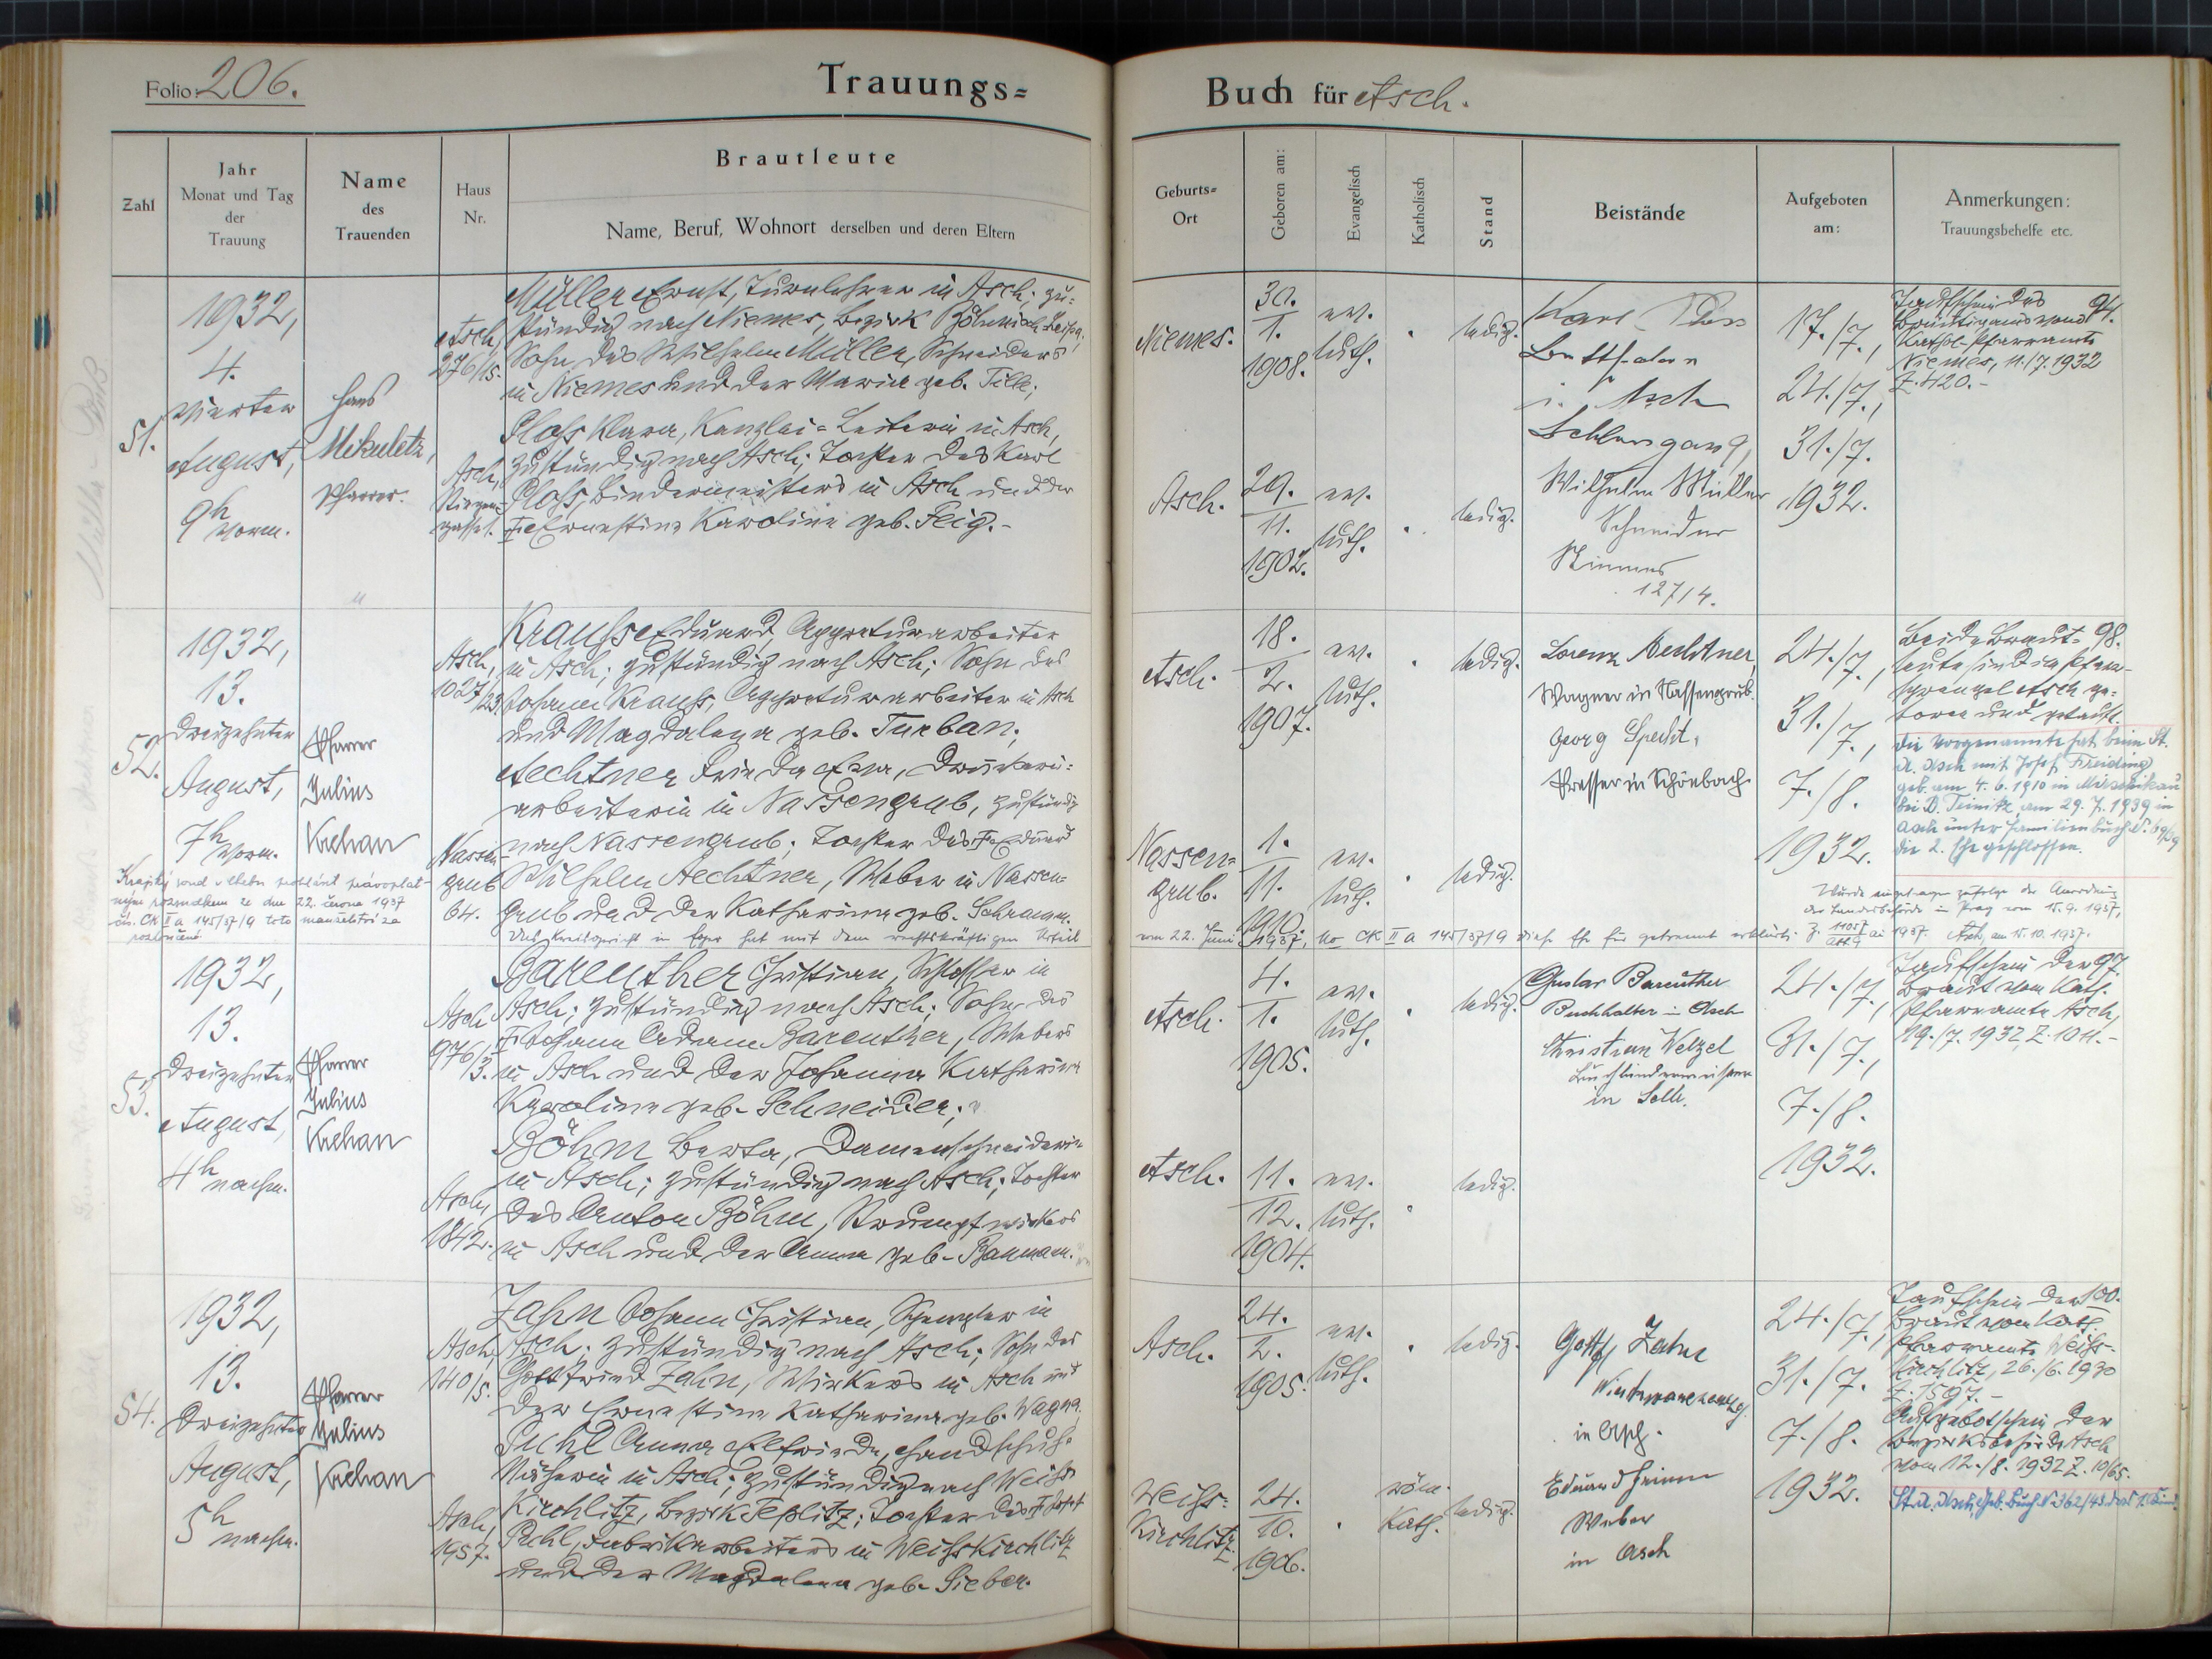 Folio: 206.
Trauungs=
Buch für Asch.
Zahl
Jahr
Monat und Tag
der
Trauung
Name
des
Trauenden
Haus
Nr.
Brautleute
Name, Beruf, Wohnort derselben und deren Eltern
Geburts=
Ort
Geboren am:
Evangelisch
Katholisch
Stand
Beistände
Aufgeboten
am:
Anmerkungen:
Trauungsbehelfe etc.
51.
1932,
4.
vierter
August,
9h
vorm.
Hans
Mikuletz,
Pfarrer.
Asch,
276/15.
Müller Ernst, Turnlehrer in Asch; zu=
ständig nach Niemes, Bezirk Böhmisch Leipa;
Sohn des Wilhelm Müller, Schneiders
in Niemes und der Maria geb. Tille;
Asch,
Ploss Klara, Kanzlei=Leiterin in Asch,
zuständig nach Asch; Tochter des Karl
Ploss, Bindermeisters in Asch und der
Ernestine Karoline geb. Feig.-
Niemes.
30.
1.
1908.
ev.
luth.
ledig.
Asch.
29.
11.
1902.
ev.
luth.
ledig.
Karl Ploss
i. Asch
Wilhelm Müller
Schneider
Niemes
127/4.
17./7.,
24./7.,
31./7.
1932.
Taufschein des 94.
Bräutigams vom
Kathol. Pfarramte
Niemes, 11./7. 1932
Z. 420.-
52.
1932,
13.
dreizehnter
August,
7h
vorm.
Pfarrer
Julius
Krehan
Asch,
1027/23
Krauss Eduard, Appreturarbeiter
in Asch; zuständig nach Asch; Sohn des
Johann Krauss, Appreturarbeiter in Asch
und Magdalena geb. Turban;
Nassen-
grub
64.
Aechtner Frieda Erna, Druckerei=
arbeiterin in Nassengrub, zuständig
nach Nassengrub; Tochter des Eduard
Wilhelm Aechtner, Weber in Nassen=
grub und der Katharina geb. Schramm.
Krajský soud v Chebu prohlásil právoplat-
ným rozsudkem ze dne 22. června 1937
čís. CK II a 145/37/9 toto manželství za
rozloučené.
Das Kreisgericht in Eger hat mit dem rechtskräftigen Urteil
vom 22. Juni 1937, No CK II a 145/37/9 diese Ehe für getrennt erklärt.
Asch.
18.
2.
1907.
ev.
luth.
ledig.
Nassen=
grub.
1.
11.
1910.
ev.
luth.
ledig.
Lorenz Aechtner,
Wagner in Nassengrub.
Georg Specht,
Presser in Schönbach.
24./7.,
31./7.,
7./8.
1932.
Beide Braut= 98.
leute sind im Pfarr-
sprengel Asch ge=
boren und getauft.
Die Vorgenannte hat beim St.
A. Asch mit Josef
geb. am 4. 6. 1910 in
bei B. Teinitz am 29. 7. 1939 in
Asch unter Familienbuch Nr. 69/39
die 2. Ehe geschlossen.
Wurde eingetragen zufolge der Anordnung
der Landesbehörde in Prag vom 15. 9. 1937,
Asch, am 15. 10. 1937.
53.
1932,
13.
dreizehnter
August,
4h
nachm.
Pfarrer
Julius
Krehan
Asch
976/3.
Bareuther Christian, Schlosser in
Asch; zuständig nach Asch; Sohn des
Johann Adam Bareuther, Webers
in Asch und der Johanna Katharina
Karoline geb. Schneider;
Asch,
1842.
Böhm Berta, Damenschneiderin
in Asch; zuständig nach Asch; Tochter
des Anton Böhm, Strumpfwirkers
in Asch und der Anna geb. Baumann.
Asch.
4.
1.
1905.
ev.
luth.
ledig.
Asch.
11.
12.
1904.
ev.
luth.
ledig.
Gustav Bareuther
Buchhalter in Asch
Christian Welzel
Buchbindermeister
in Selb.
24./7.,
31./7.,
7./8.
1932.
Taufschein der 97.
Braut vom Kath.
Pfarramte Asch,
19./7. 1932, Z. 104.-
54.
1932,
13.
dreizehnter
August,
5h
nachm.
Pfarrer
Julius
Krehan
Asch,
140/5.
Zahn Johann Christian, Spengler in
Asch; zuständig nach Asch; Sohn des
Gottfried Zahn, Wirkers in Asch und
der Ernestine Katharina geb. Wagner.
Asch,
1957.
Pichl Anna Elfriede, Handschuh=
Näherin in Asch; zuständig nach Weiss
Kirchlitz, Bezirk Teplitz; Tochter des Josef
Pichl, Fabrikarbeiters in Weisskirchlitz
und der Magdalena geb. Sieber.
Asch.
24.
2.
1905.
ev.
luth.
ledig.
Weiss=
Kirchlitz.
24.
10.
1906.
röm.
Kath.
ledig.
Gottf. Zahn
in Asch.
Eduard
Weber
in Asch
24./7.,
31./7.
7./8.
1932.
Taufschein der 100.
Braut vom Kath.
Pfarramte Weiss-
Kirchlitz, 26./6. 1930
Z. 1597.-
Aufgebotschein der
Bezirksbehörde Asch
vom 12./8. 1932 Z. 10/65.
St.A. Asch, Geb. Buch Nr. 362/43. 1. Kind.